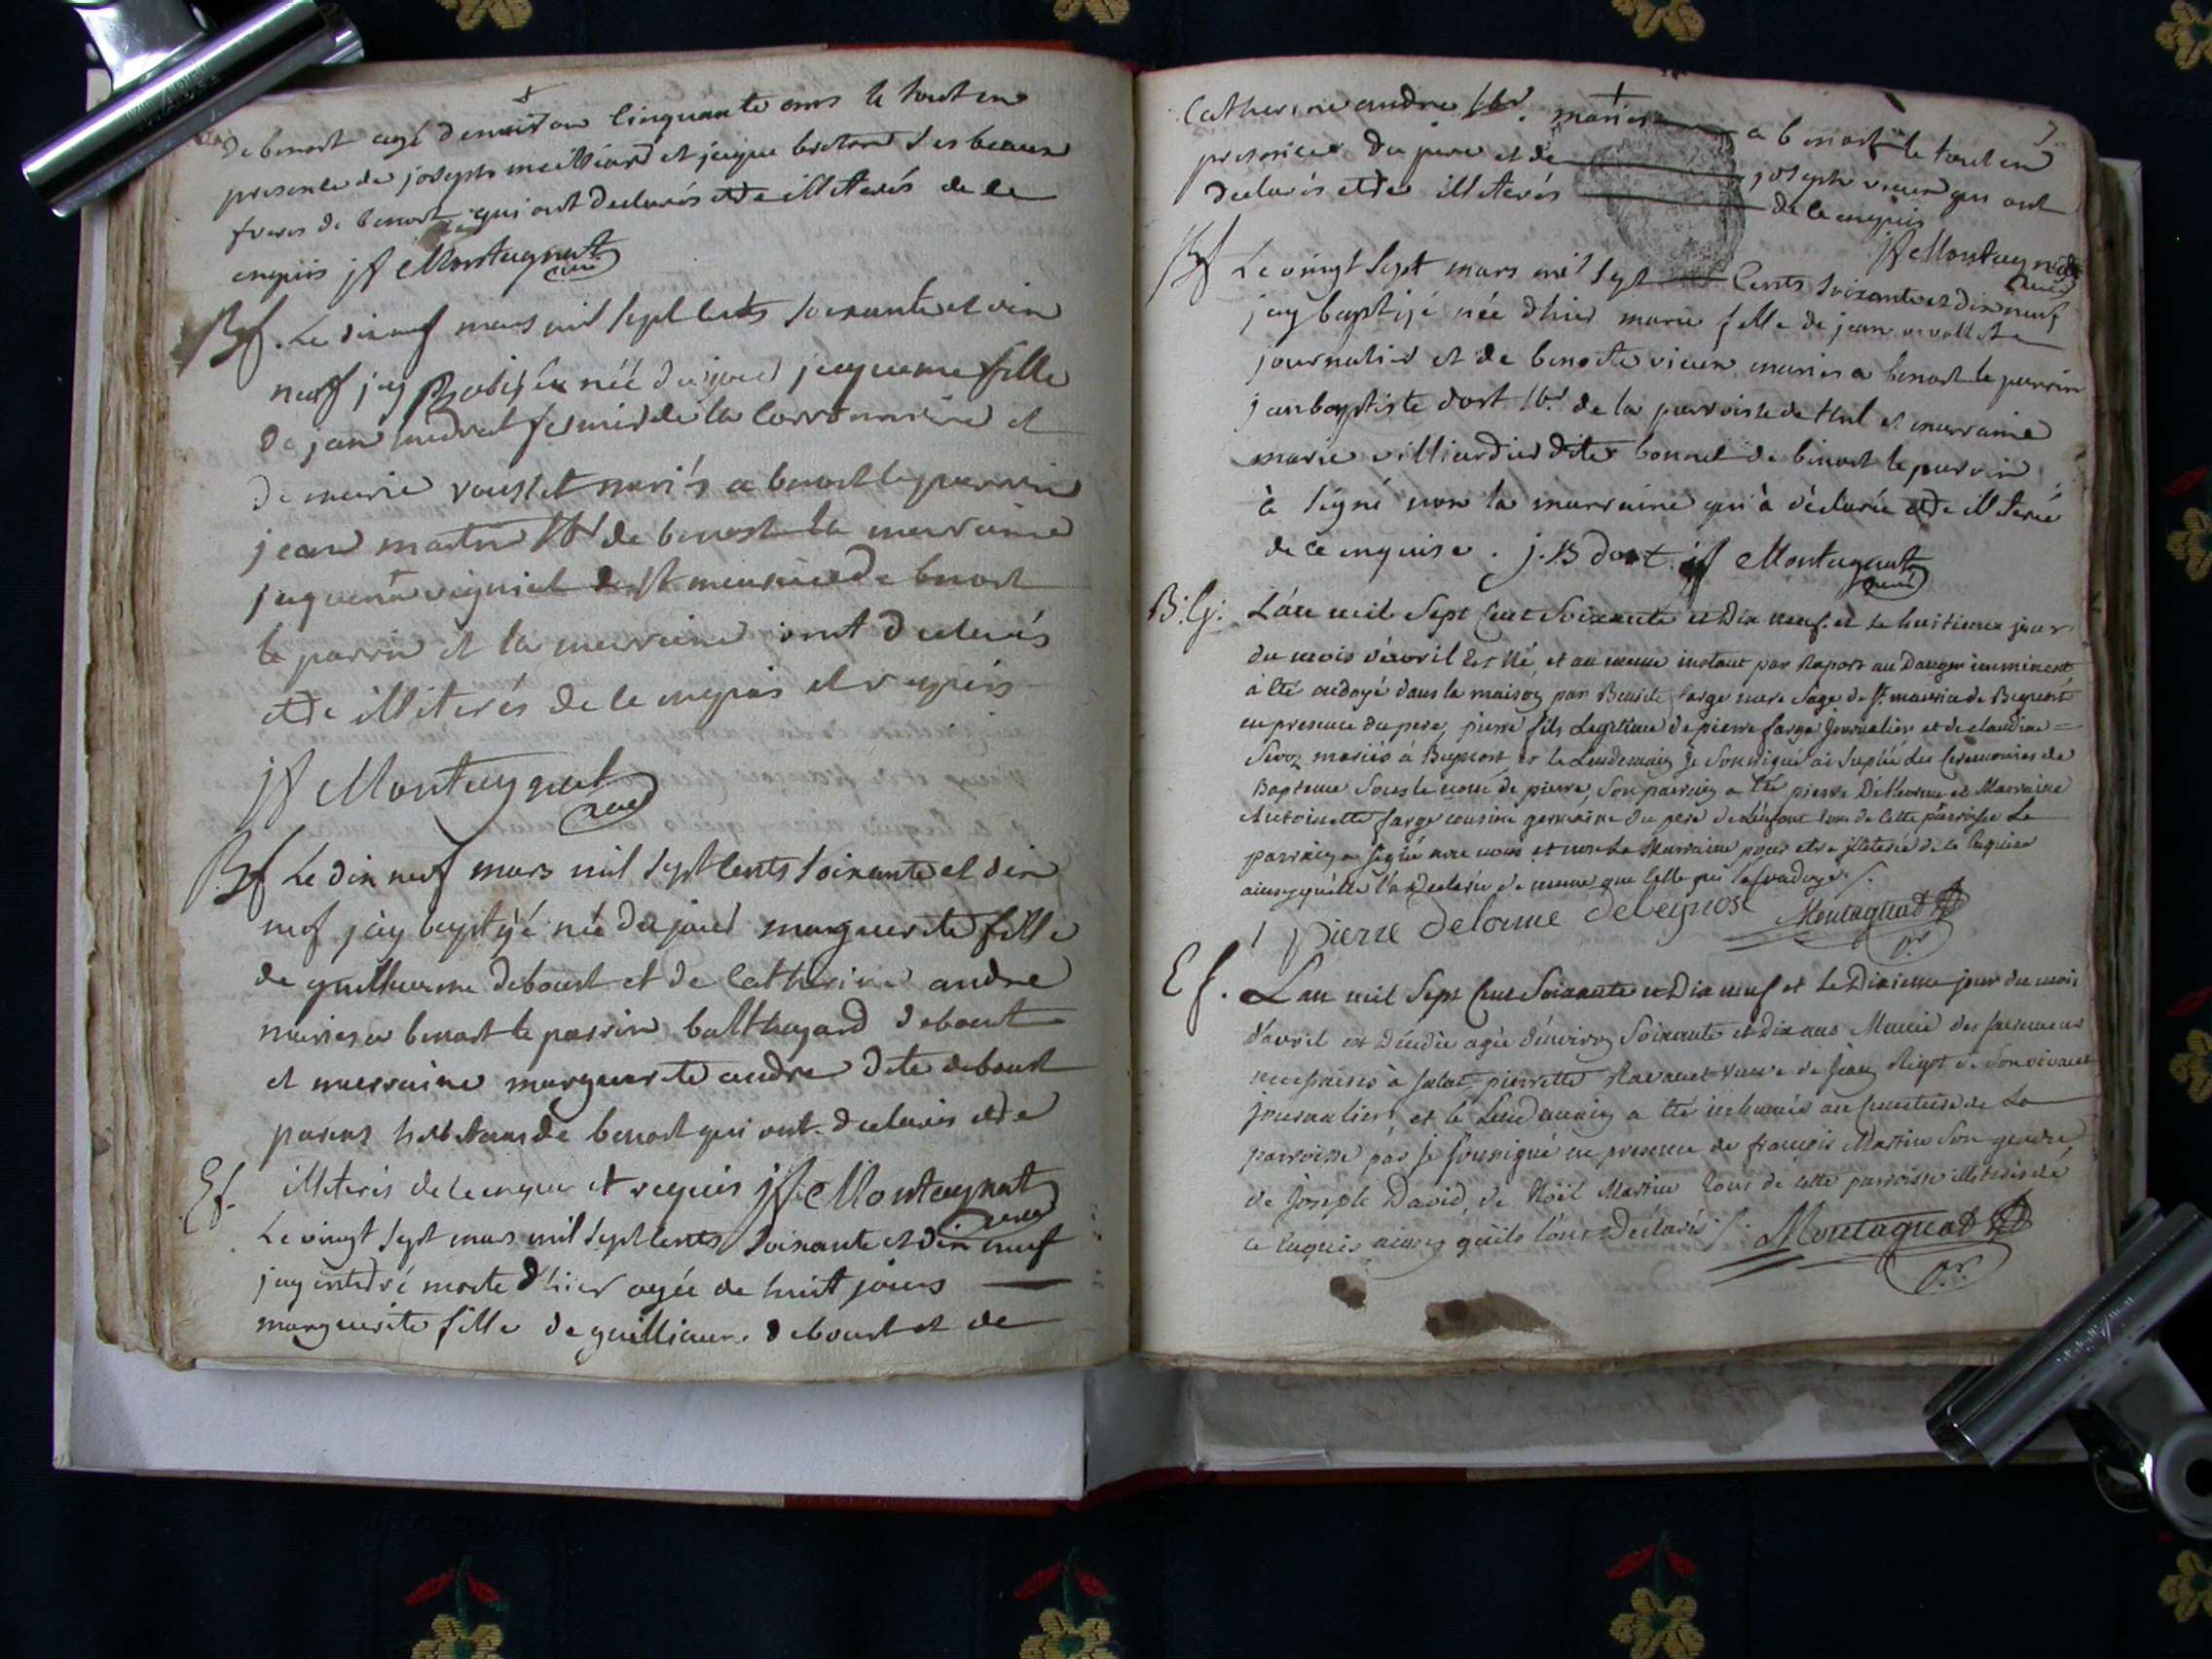 de benost agé denviron cinquante ans le tout en
presence de joseph meilliard et jaque breton ses beaux
freres de benost qui ont declarés etre illiterés de ce
enquis jf Montagnat
curé
Bf. Le dixneuf mars mil sept cents soixante et dix
neuf jay née du jour jaqueme fille
de jean fermier de la et
de marie mariés a benost le parrin
jean martin de benost la marraine
jaquema de st maurice de benost
le parrin et la marraine ont declarés
etre illiterés de ce enquis et requis
jf Montagnat
curé
Bf Le dix neuf mars mil sept cents soixante et dix
neuf jay baptisé née du jour marguerite fille
de guilleaume deboust et de catherine andre
mariés a benost le parrin balthazard deboust
et marraine marguerite andre dite deboust
parens habitans de benost qui ont declarés etre
illiterés de ce enquis et requis jf Montagnat
curé
Ef. Le vingt sept mars mil sept cents soixante et dix neuf
jay enterré morte d'hier agée de huit jours
marguerite fille de guilliaume deboust et de
Catherine andre mariés a benost le tout en
presence du pere et de joseph vieux qui ont
declarés etre illiterés de ce enquis
jf Montagnat
curé
Bf Le vingt sept mars mil sept cents soixante et dix neuf
jay baptisé née d'hier marie fille de jean
journalier et de benoite vieux mariés a benost le parrin
jean baptiste dort de la parroisse de et marraine
marie villiardier dite bonnet de benost le parrin
à signé non la marraine qui à déclarée etre illiterée
de ce enquise. j. B dort jf Montagnat
curé
B.G. L'an mil sept cent soixante et dix neuf et le huitieme jour
du mois d'avril est né et au meme instant par raport au danger imminent
à été ondoyé dans la maison par Benoite farge mere sage de St maurice de
en presence du pere, pierre fils legitime de pierre farge journalier et de claudine =
Sevoz mariés à et le Lendemain je soussigné ai suplée les ceremonies de
Bapteme sous le nom de pierre, son parrain a été pierre Delorme et Marraine
Antoinette farge cousine germaine du pere de L'enfant tous de cette parroisse Le
parrain a signé avec nous et non La Marraine pour etre illiterée de ce enquise
ainsy quelle l'a declarée de meme que celle qui /.
pierre delorme Montagnat
pr.
Ef. L'an mil sept cent soixante et Dix neuf et le Dixieme jour du mois
d'avril est Décédée agée d'environ soixante et dix ans Munie des sacremens
à salut, pierrette Ravanet veuve de jean Rigot de son vivant
journalier, et le Lendemain a été inhumée au cimetiere de La
parroisse par je soussigné en presence de françois Martin son gendre
de Joseph David, de Noël Martin tous de cette parroisse illiterés de
ce enquis ainsy qu'ils l'ont Déclarés /. Montagnat
pr.